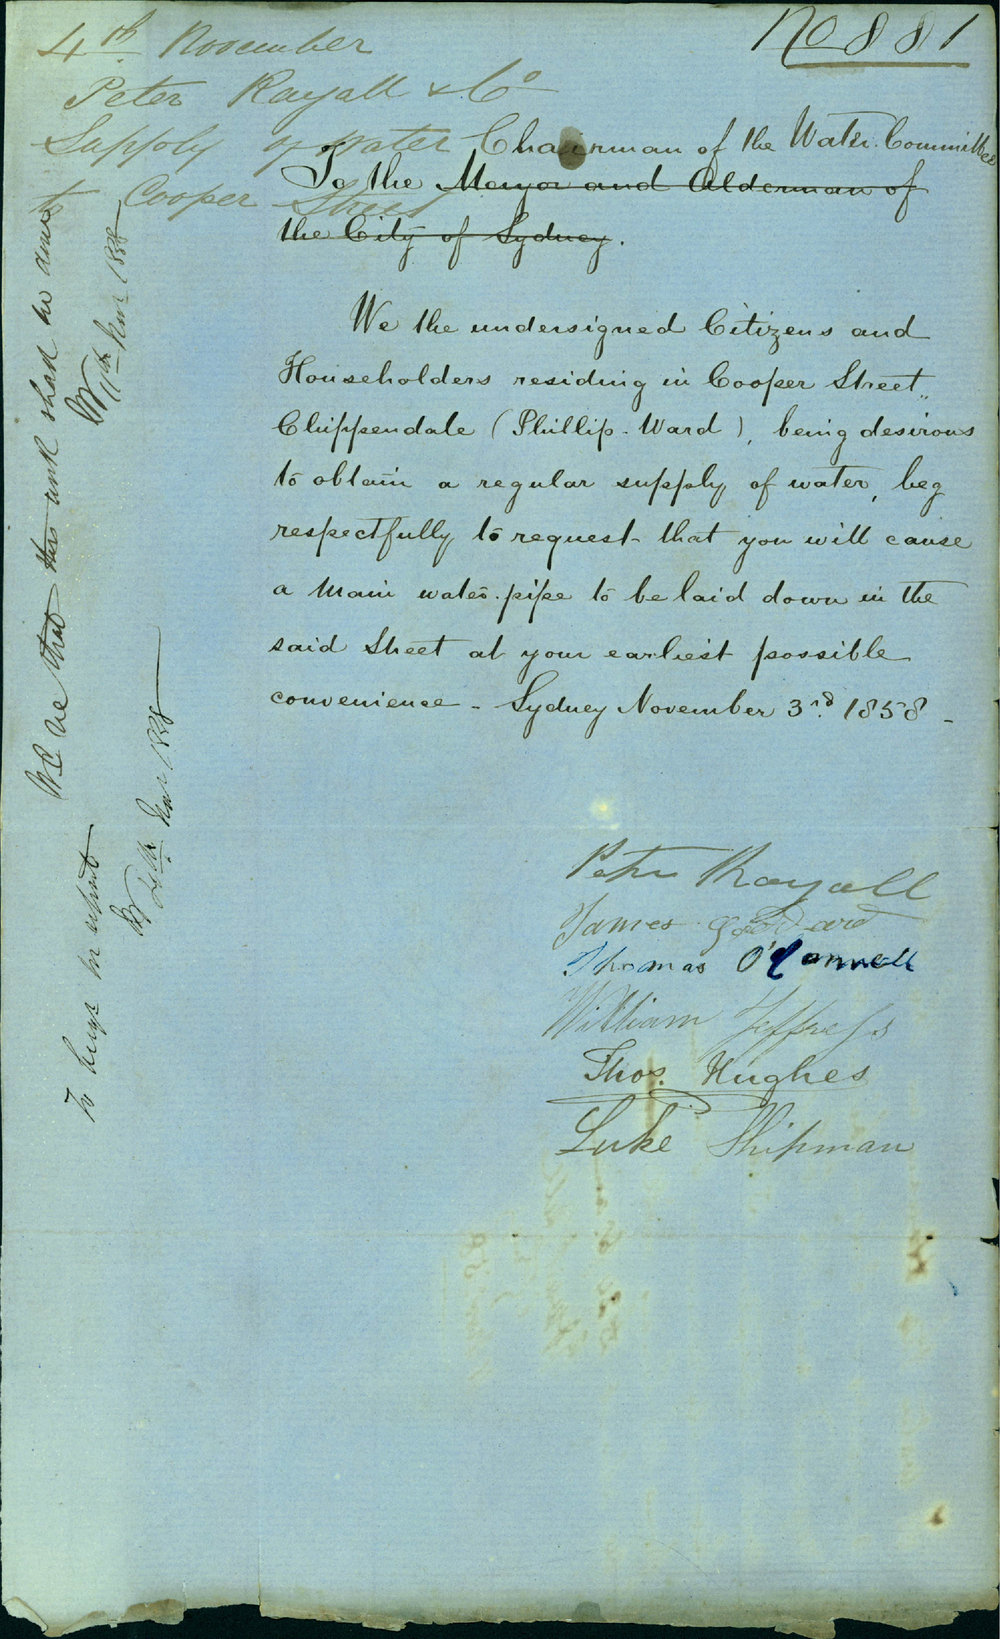 No 881
4th November
Peter Rayall & Co
Supply of water
to Cooper Street
Chairman of the Water Committee
To the Mayor and Alderman of
the City of Sydney.
We the undersigned Citizens and
Householders residing in Cooper Street,
Chippendale (Phillip-Ward), being desirous
to obtain a regular supply of water, beg
respectfully to request that you will cause
a main water-pipe to be laid down in the
said Street at your earliest possible
convenience - Sydney November 3rd 1858 -
Peter Rayall
James Goddard
Thomas O'Connell
William Jeffreys
Thos. Hughes
Luke Shipman
shall be
1858
1858
To